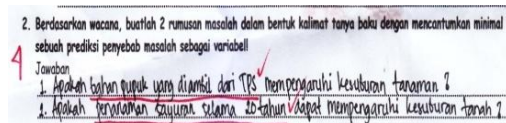 2. Berdasarkan wacana, buatlah 2 rumusan masalah dalam bentuk kalimat tanya baku dengan mencantumkan minimal
sebuah prediksi penyebab masalah sebagai variabel!
4
Jawaban
1. Apakah bahan pupuk yang diambil dari TPS mempengaruhi kesuburan tanaman ?
2. Apakah penanaman sayuran selama 20 tahun dapat mempengaruhi kesuburan tanah ?